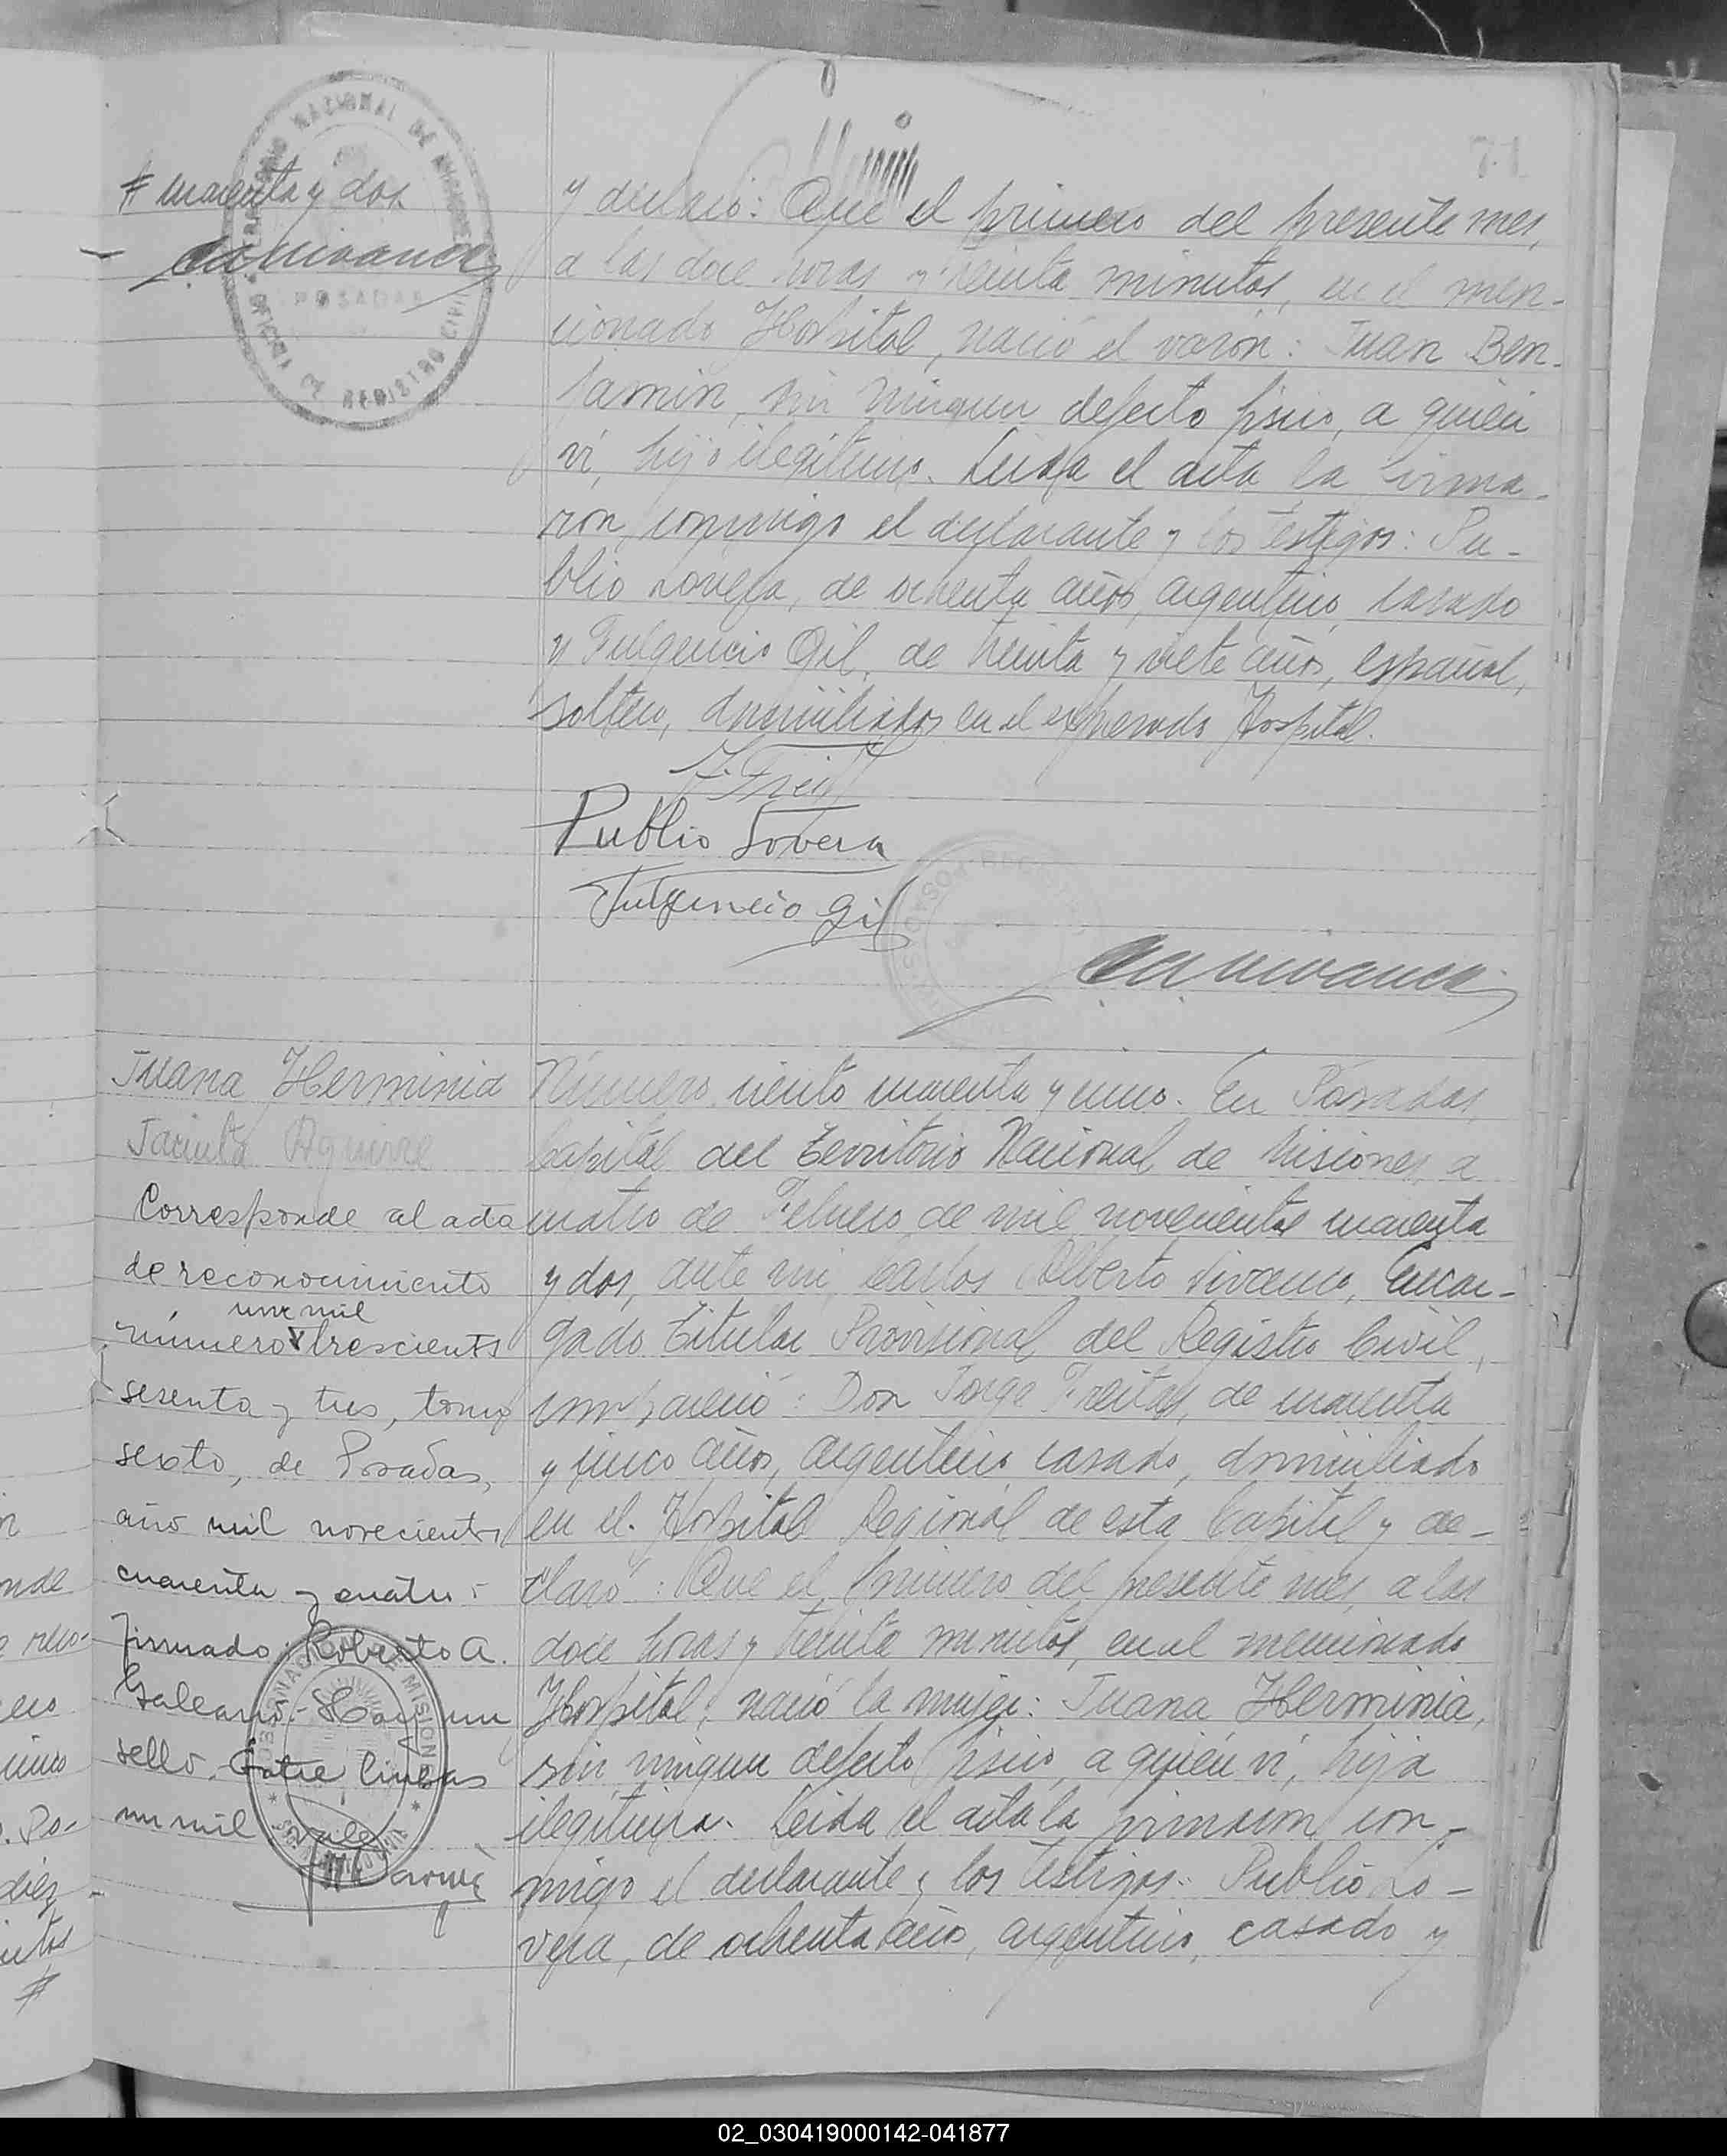 71
# cuarenta y dos.
y declaró: Que el primero del presente mes,
a las doce horas y treinta minutos, en el men-
cionado Hospital, nació el varón: Juan Ben-
jamin, sin ningun defecto fisico, a quien
vi, hijo ilegitimo. Leida el acta la firma-
ron conmigo el declarante y los testigos: Pu-
blio Lovera, de ochenta años, argentino, casado
y Fulgencio Gil, de treinta y siete años, español,
soltero, domiciliados en el expresado Hospital.
Publio Lovera
Fulgencio Gil
Juana Herminia
Jacinta Aguirre
Corresponde al acta
de reconocimiento
un mil
número trescientos
sesenta y tres, tomo
sexto, de Posadas,
año mil novecientos
cuarenta y cuatro.
firmado: Roberto A.
Galeano.- Hay un
sello. Entre lineas
un mil. Vale
Número ciento cuarenta y uno. En Posadas,
Capital del Territorio Nacional de Misiones, a
cuatro de Febrero de mil novecientos cuarenta
y dos, ante mi, Carlos Alberto Vivanco, Encar-
gado Titular Provisional del Registro Civil,
compareció: Don Jorge Freitas, de cuarenta
y cinco años, argentino, casado, domiciliado
en el Hospital Regional de esta Capital y de-
claró: Que el primero del presente mes, a las
doce horas y treinta minutos, en el mencionado
Hospital, nació la mujer: Juana Herminia,
sin ningun defecto fisico, a quien vi, hija
ilegitima. Leida el acta la firmaron con-
migo el declarante y los testigos: Publio Lo-
vera, de ochenta años, argentino, casado y
OFICINA DE REGISTRO CIVIL
POSADAS
02_030419000142-041877